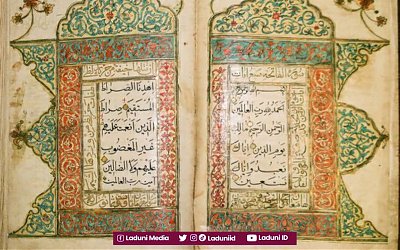 الحمد لله رب العلمين
الرحمن الرحيم ملك
يوم الدين اياك
نعبد واياك
نستعين
اهدنا الصراط
المستقيم صراط
الذين انعمت عليهم
غير المغضوب
عليهم ولا الضالين
امين رب العالمين
Laduni Media
Laduniid
Laduni ID